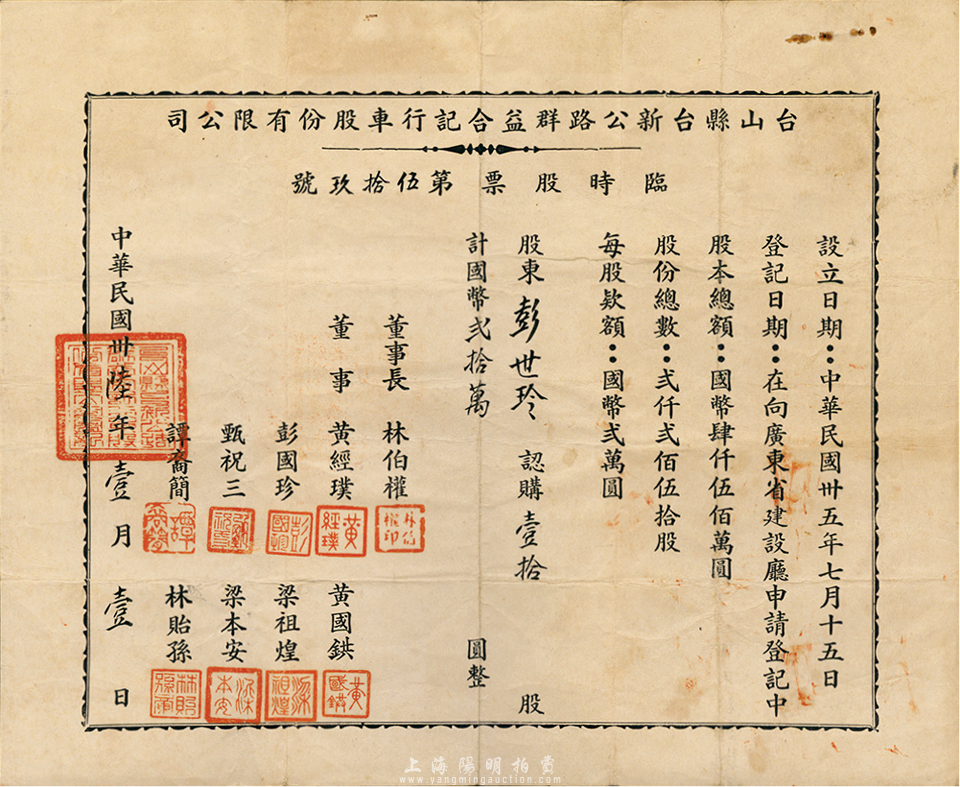 台山縣台新公路群益合記行車股份有限公司
臨時股票第伍拾玖號
設立日期：中華民國卅五年七月十五日
登記日期：在向廣東省建設廳申請登記中
股本總額：國幣肆仟伍佰萬圓
股份總數：弍仟弍佰伍拾股
每股欵額：國幣弍萬圓
股東彭世玲認購壹拾股
計國幣弍拾萬圓整
董事長 林伯權
董事 黃經璞 黃國鉷
彭國珍 梁祖煌
甄祝三 梁本安
譚裔簡 林貽孫
中華民國卅陸年壹月壹日
黃經璞
黃國鉷
上海陽明拍賣
www.yangmingauction.com